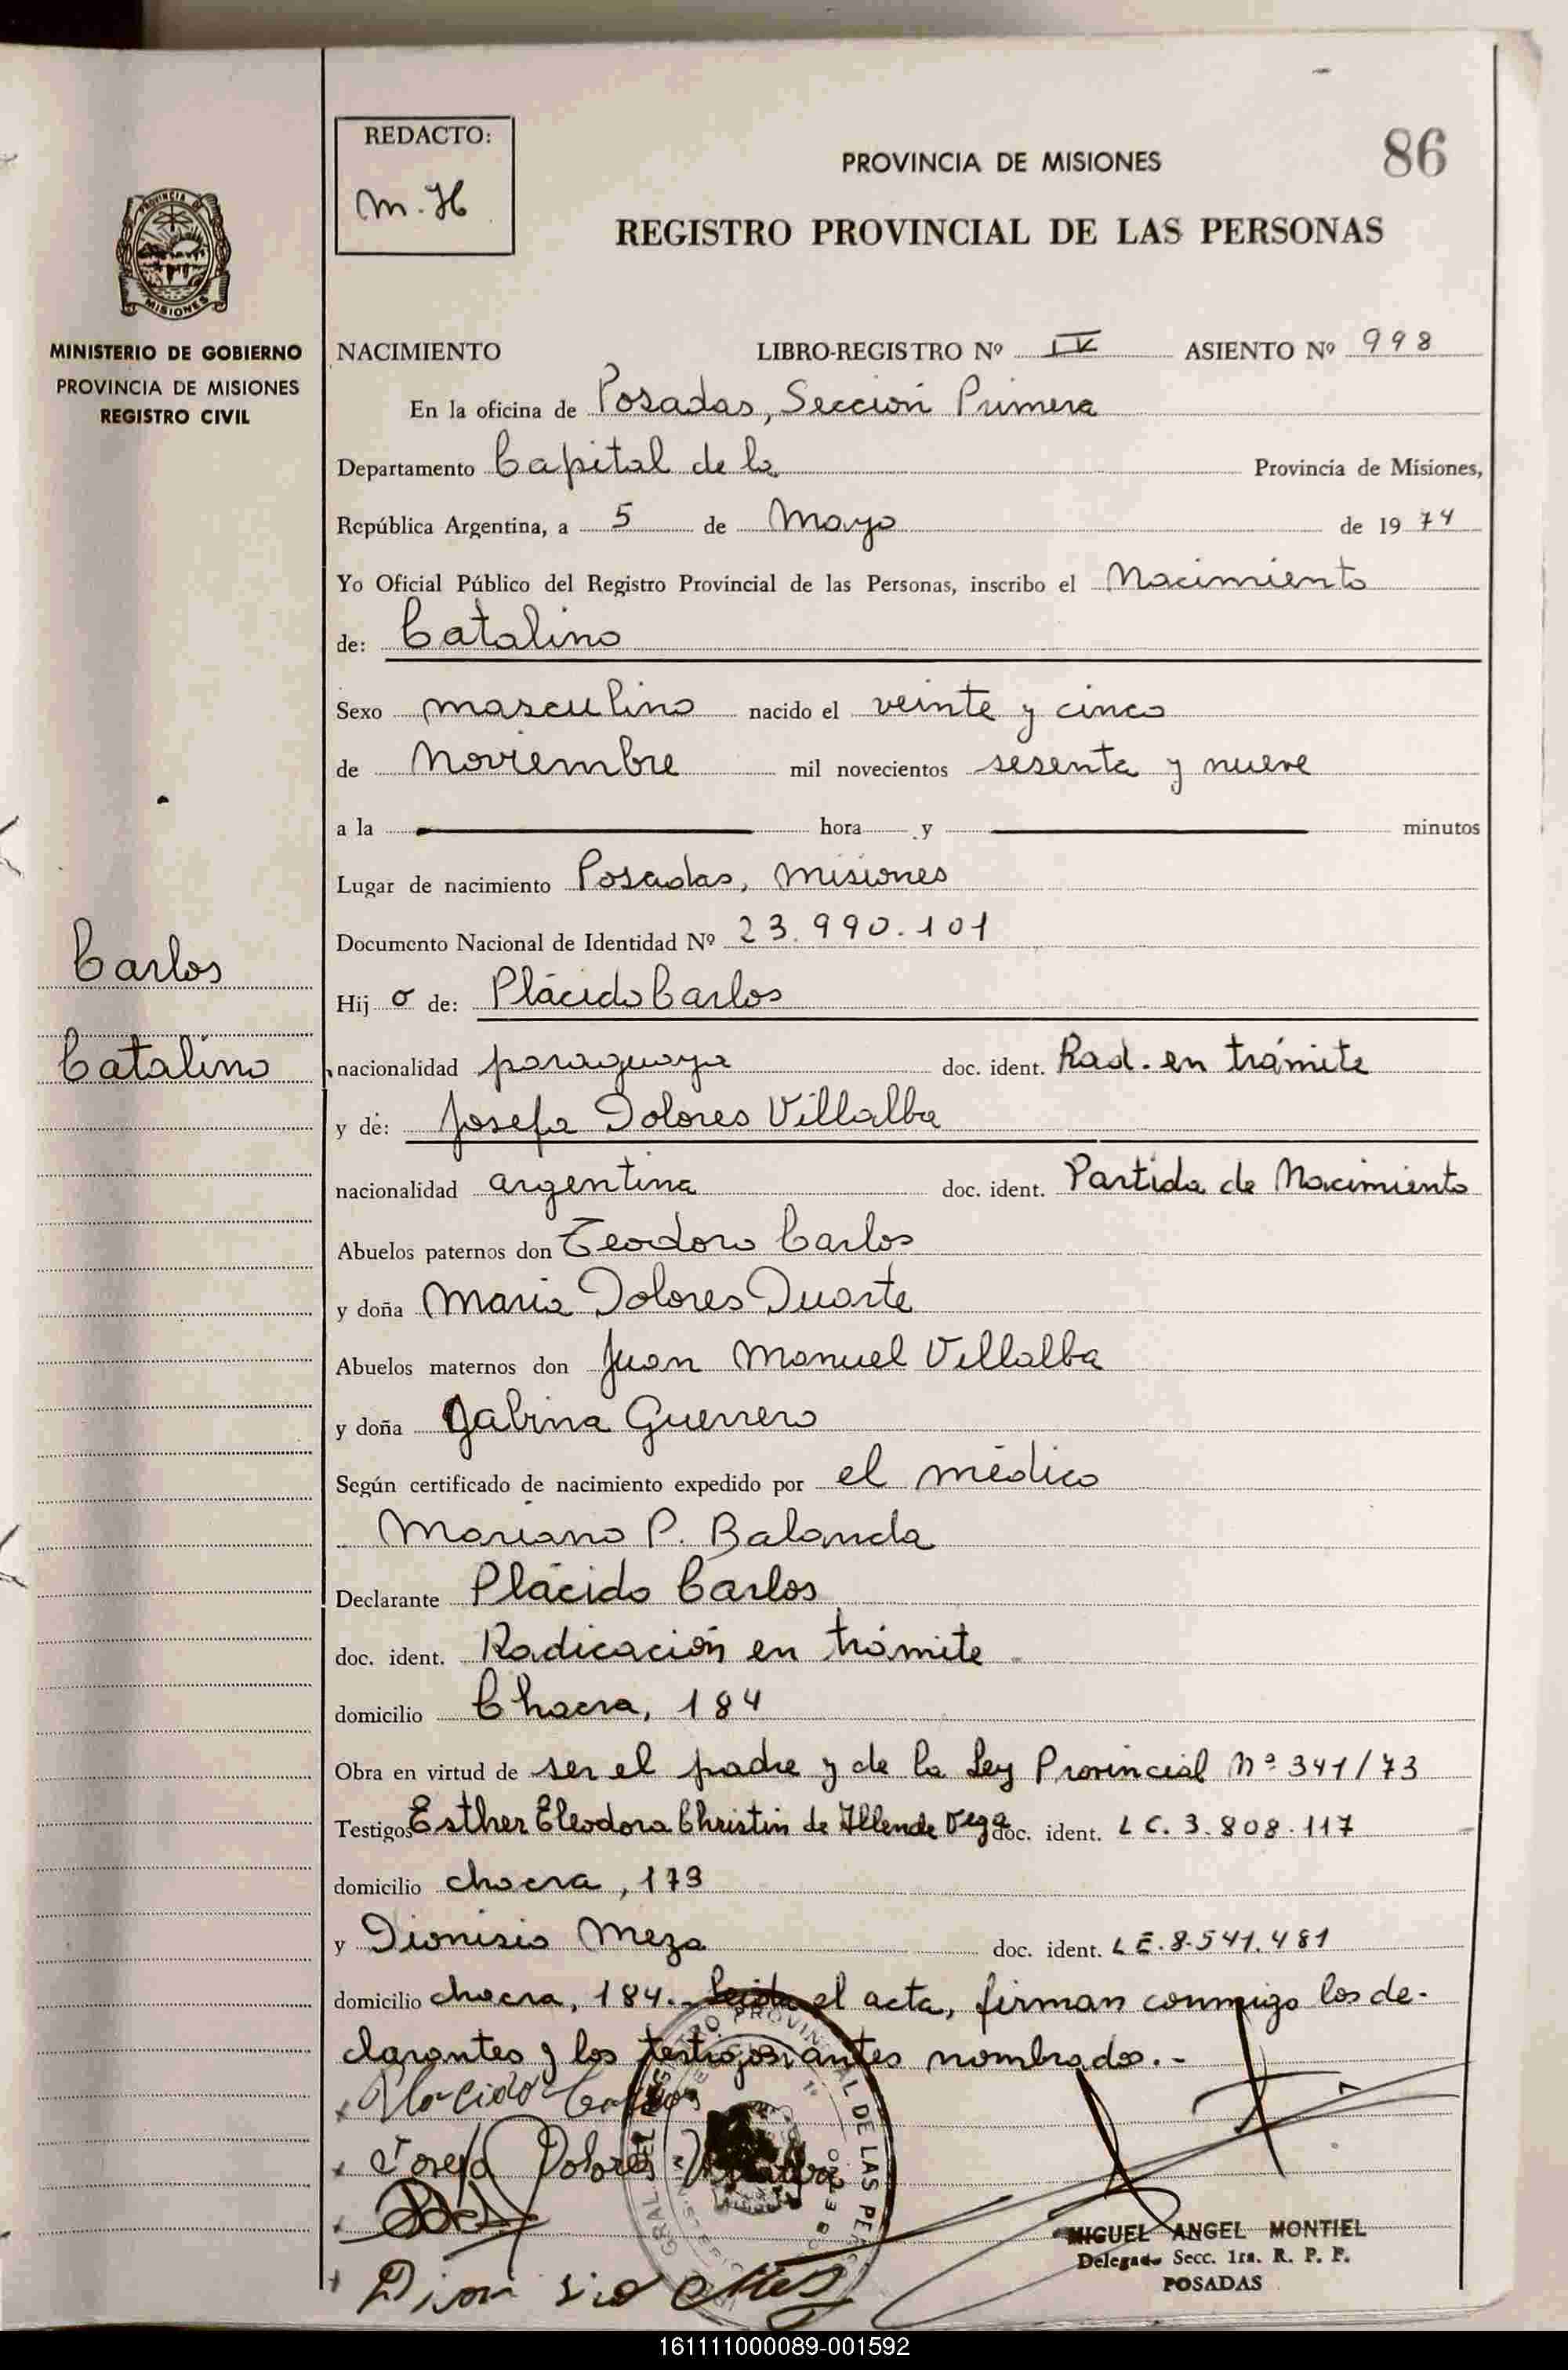 REDACTO:
M. H
PROVINCIA DE MISIONES
86
REGISTRO PROVINCIAL DE LAS PERSONAS
PROVINCIA DE
MISIONES
MINISTERIO DE GOBIERNO
PROVINCIA DE MISIONES
REGISTRO CIVIL
NACIMIENTO LIBRO-REGISTRO Nº IV ASIENTO Nº 998
En la oficina de Posadas, Sección Primera
Departamento Capital de la Provincia de Misiones,
República Argentina, a 5 de Mayo de 19 74
Yo Oficial Público del Registro Provincial de las Personas, inscribo el Nacimiento
de: Catalino
Sexo masculino nacido el veinte y cinco
de Noviembre mil novecientos sesenta y nueve
a la hora y minutos
Lugar de nacimiento Posadas, Misiones
Documento Nacional de Identidad Nº 23.990.101
Carlos
Hij o de: Plácido Carlos
Catalino
nacionalidad paraguaya doc. ident. Rad. en trámite
y de: Josefa Dolores Villalba
nacionalidad argentina doc. ident. Partida de Nacimiento
Abuelos paternos don Teodoro Carlos
y doña Maria Dolores Duarte
Abuelos maternos don Juan Manuel Villalba
y doña Gabina Guerrero
Según certificado de nacimiento expedido por el médico
Mariano P. Balanda
Declarante Plácido Carlos
doc. ident. Radicación en trámite
domicilio Chacra, 184
Obra en virtud de ser el padre y de la Ley Provincial Nº 341/73
Testigos Esther Eleodora Christin de Allende Vega doc. ident. L C. 3.808.117
domicilio chacra, 173
y Dionisio Meza doc. ident. L E. 8.541.481
domicilio chacra, 184.- Leida el acta, firman conmigo los de-
clarantes y los testigos antes nombrados.-
Placido Carlos
Josefa Dolores Villalba
MIGUEL ANGEL MONTIEL
Delegado Secc. 1ra. R. P. P.
POSADAS
Dionisio Meza
161111000089-001592